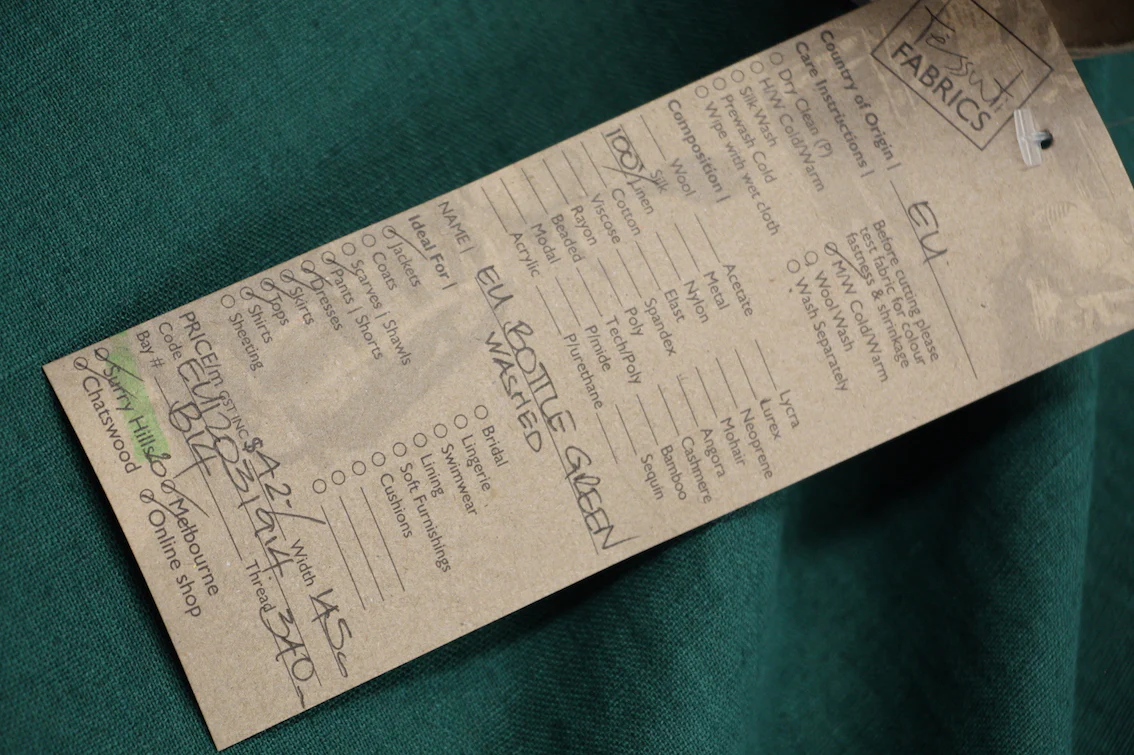 tessuti
FABRICS
Country of Origin | EU
Care Instructions |
Before cutting please
test fabric for colour
fastness & shrinkage
Dry Clean (P)
H/W Cold/Warm
Silk Wash
Prewash Cold
Wipe with wet cloth
M/W Cold/Warm
Wool Wash
Wash Separately
Composition |
Wool
Silk
100% Linen
Cotton
Viscose
Rayon
Beaded
Modal
Acrylic
Acetate
Metal
Nylon
Elast
Spandex
Poly
Tech/Poly
P/mide
P/urethane
Lycra
Lurex
Neoprene
Mohair
Angora
Cashmere
Bamboo
Sequin
NAME | EU BOTTLE GREEN
WASHED
Ideal For |
Jackets
Coats
Scarves | Shawls
Pants | Shorts
Dresses
Skirts
Tops
Shirts
Sheeting
Bridal
Lingerie
Swimwear
Lining
Soft Furnishings
Cushions
PRICE/m GST INC $42-/ Width 145c
Code EU12031914 Thread 340
Bay # B14
Surry Hills
Melbourne
Chatswood
Online shop